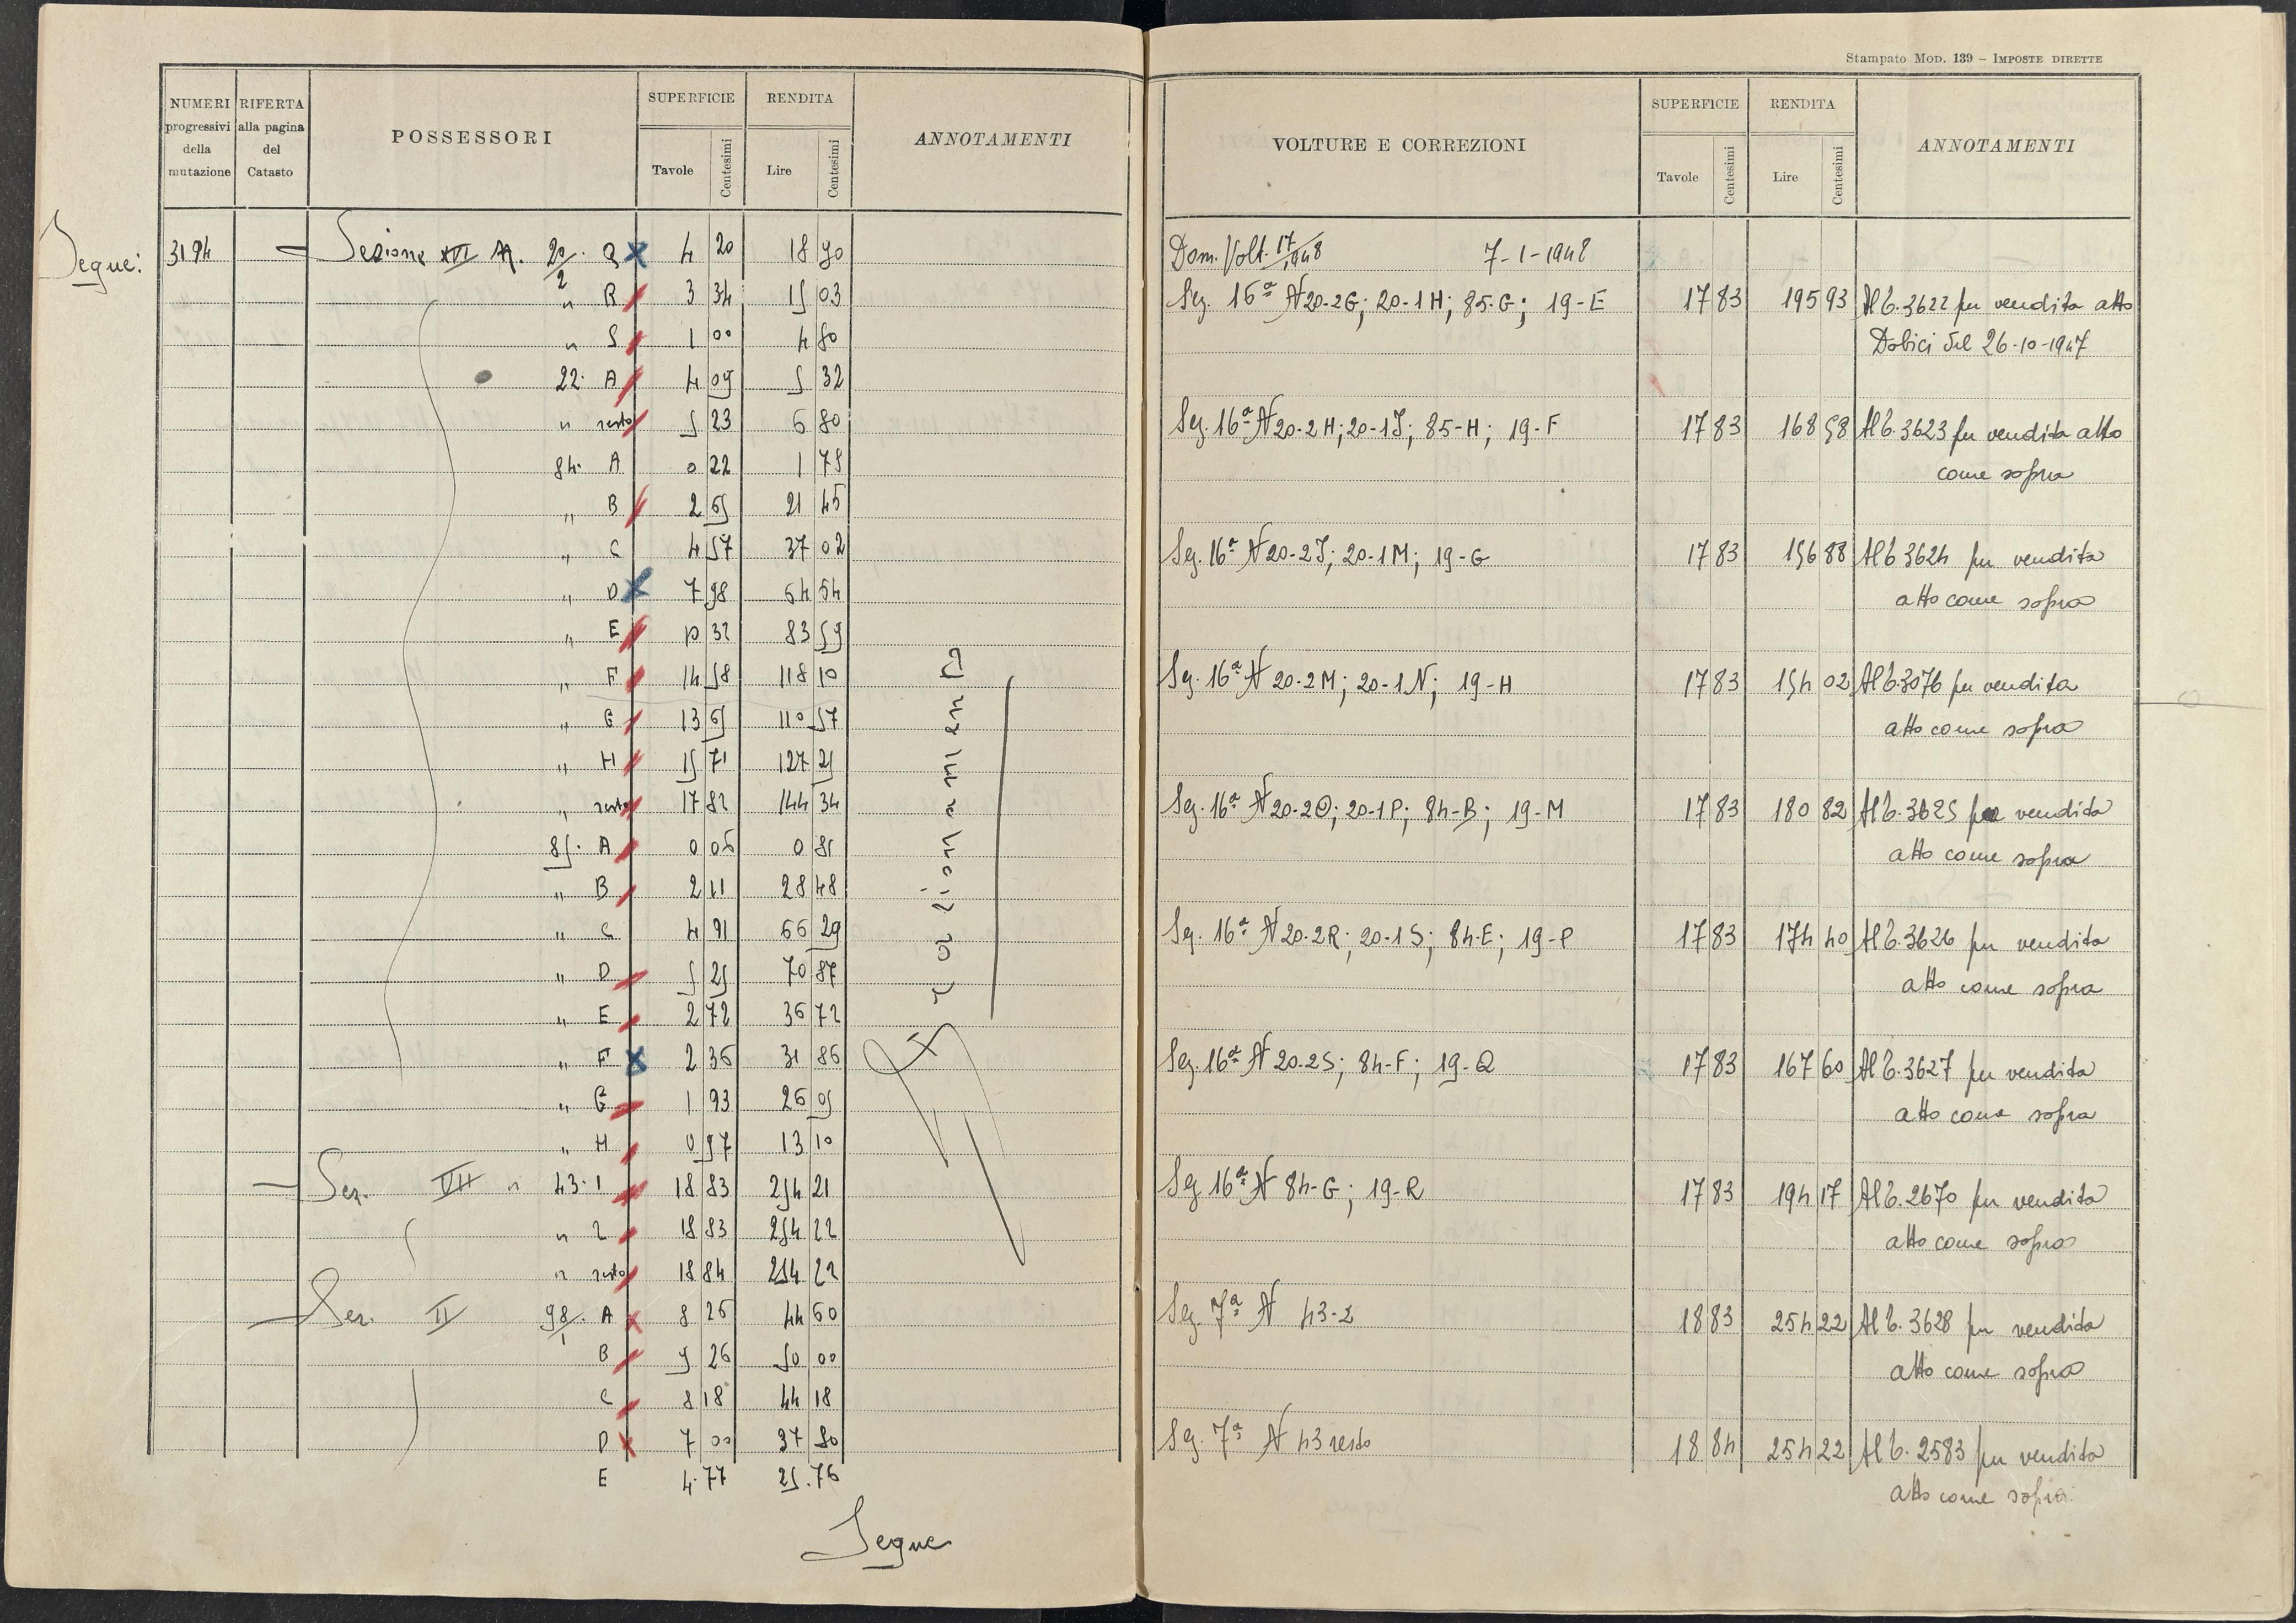 Stampato MOD. 139 – IMPOSTE DIRETTE
NUMERI progressivi della mutazione
RIFERTA alla pagina del Catasto
POSSESSORI
SUPERFICIE
Tavole
Centesimi
RENDITA
Lire
Centesimi
ANNOTAMENTI
Segue:
3194 Sezione XVI N. 20/2. Q 4 20 18 90
" R 3 34 15 03
" S 1 00 4 50
22. A 4 09 5 32
" resto 5 23 6 80
84. A 0 22 1 78
" B 2 65 21 45
" C 4 57 37 02
" D 7 98 64 64
" E 10 32 83 59
" F 14 58 118 10
" G 13 65 110 57
" H 15 71 127 25
" resto 17 82 144 34
85. A 0 06 0 81
" B 2 11 28 48
" C 4 91 66 29
" D 5 25 70 87
" E 2 72 36 72
" F 2 36 31 86
" G 1 93 26 05
" H 0 97 13 10
Sez. VII n 43. 1 18 83 254 21
" 2 18 83 254 22
" resto 18 84 254 22
Sez. II 98/1. A 8 26 44 60
B 9 26 50 00
C 8 18 44 18
D 7 00 37 80
E 4.77 25.76
Segue
Frazionamento
VOLTURE E CORREZIONI
SUPERFICIE
Tavole
Centesimi
RENDITA
Lire
Centesimi
ANNOTAMENTI
Dom. Volt. 17/1948 7-1-1948
Sez. 16ª N 20-2G; 20-1H; 85-G; 19-E 17 83 195 93 Al 6.3622 per vendita atto
Dobici del 26-10-1947
Sez. 16ª N 20-2H; 20-1I; 85-H; 19-F 17 83 168 58 Al 6.3623 per vendita atto
come sopra
Sez. 16ª N 20-2I; 20-1M; 19-G 17 83 156 88 Al 6 3624 per vendita
atto come sopra
Sez. 16ª N 20-2M; 20-1N; 19-H 17 83 154 02 Al 6.3076 per vendita
atto come sopra
Sez. 16ª N 20-2O; 20-1P; 84-B; 19-M 17 83 180 82 Al 6.3625 per vendita
atto come sopra
Sez. 16ª N 20-2R; 20-1S; 84-E; 19-P 17 83 174 40 Al 6.3626 per vendita
atto come sopra
Sez. 16ª N 20-2S; 84-F; 19-Q 17 83 167 60 Al 6.3627 per vendita
atto come sopra
Sez. 16ª N 84-G; 19-R 17 83 194 17 Al 6.2670 per vendita
atto come sopra
Sez. 7ª N 43-2 18 83 254 22 Al 6.3628 per vendita
atto come sopra
Sez. 7ª N 43 resto 18 84 254 22 Al 6.2583 per vendita
atto come sopra.